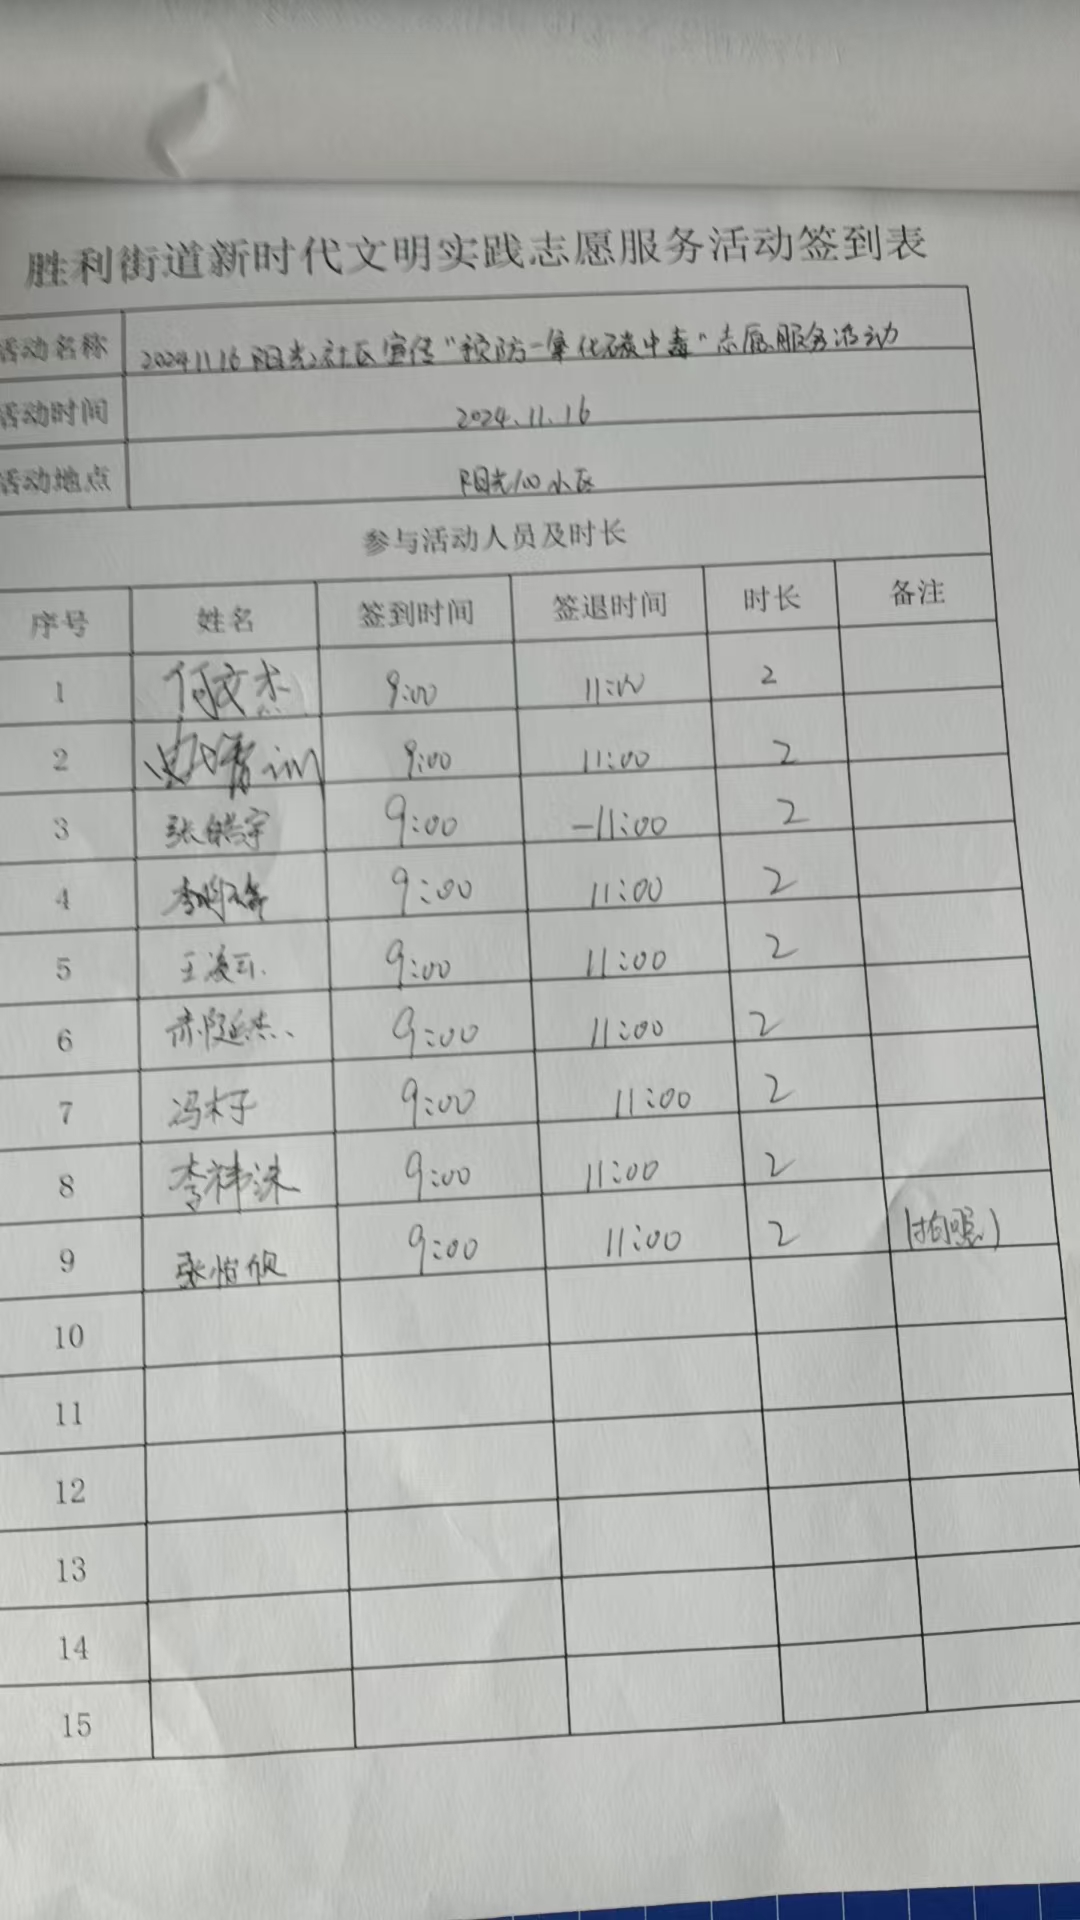 胜利街道新时代文明实践志愿服务活动签到表
活动名称 20241116 阳光社区宣传“预防一氧化碳中毒”志愿服务活动
活动时间 2024.11.16
活动地点 阳光100小区
参与活动人员及时长
序号 姓名 签到时间 签退时间 时长 备注
1 何文杰 9:00 11:00 2
2 9:00 11:00 2
3 张皓宇 9:00 -11:00 2
4 9:00 11:00 2
5 王凌云 9:00 11:00 2
6 9:00 11:00 2
7 冯木子 9:00 11:00 2
8 李祎沫 9:00 11:00 2
9 9:00 11:00 2 (拍照)
10
11
12
13
14
15